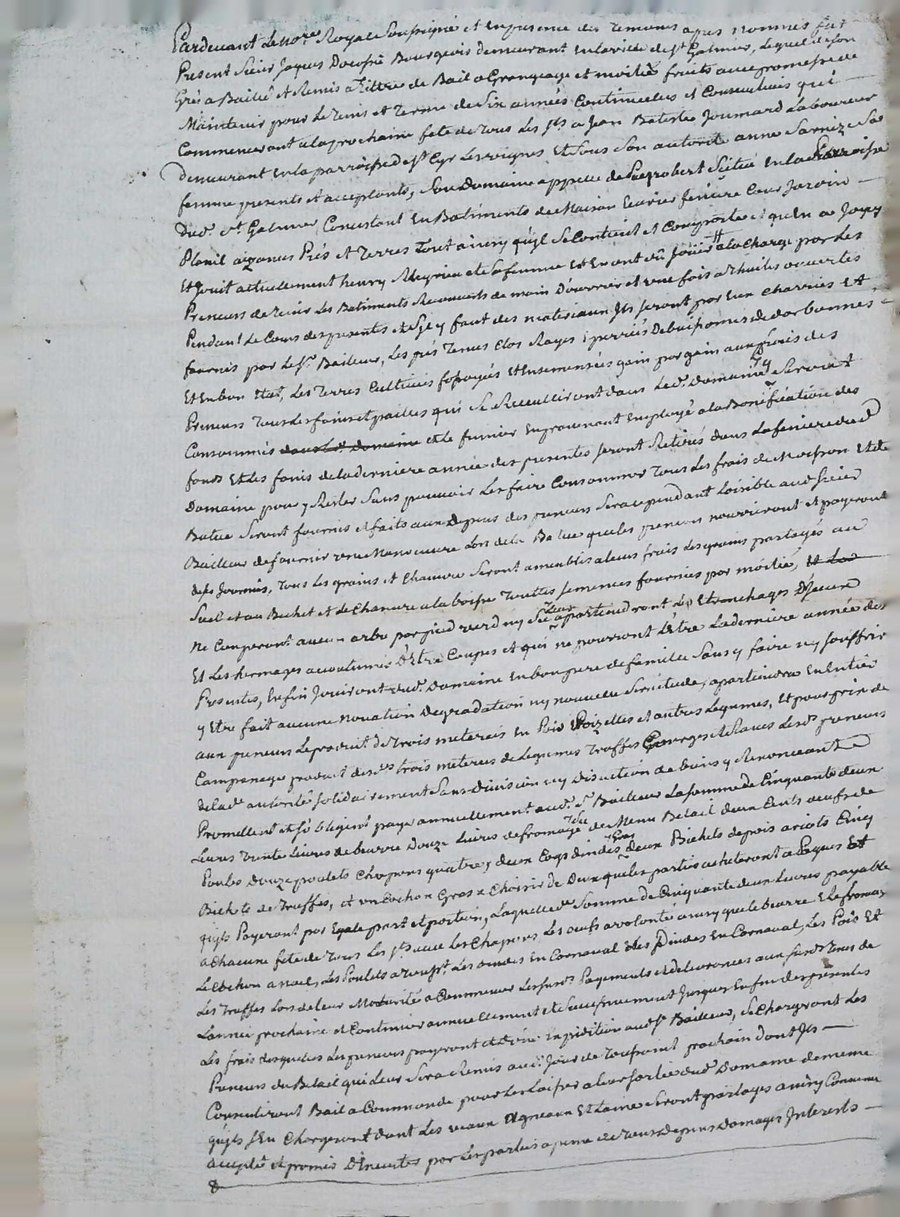 Pardevant Le no.re Royal Soussigné et en presence des Temoins apres nommés fut
Present Sieur Jaques Bourgeois demeurant en la ville de S.t Galmier, Lequel de son
gré a Baillé et Remis a Tittre de Bail a Grangeage et moitié fruits avec promesse de
Maintenir pour Le Tems et Terme de Six années Continuelles et Consecutives qui
Commenceront a la prochaine fete de Tous Les S.ts a Jean Batiste Joumard Laboureur
demeurant en la parroisse de S.t Cyr Les vignes Et Sous Son autorité anne Sa
femme presents et acceptants, Son Domaine appellé de Situé en la parroisse
dud. S.t Galmier, Consistant En Batiments de Maison Ecuries feniere Cour Jardin
Prés et Terres Tout ainsy qu'il Se Contient et Comporte et qu'en a Jouy
Et Jouit actuellement henry et Sa femme Et en ont dû Jouir a la Charge par Les
Preneurs de Tenir Les Batiments Recouverts de main D'ouvrier et une fois a Thuiles ouvertes
Pendant Le Cours des presentes et S'il y faut des materiaux Ils Seront par Eux Charriés Et
fournis par Le S.r Bailleur, Les prés Tenus Clos Rayés
Et en bon Etat, Les Terres Cultivées fossoyés Et Ensemencées gain par gain aux frais des
Preneurs Tous Les foins et pailles qui Se Recueilliront dans Led. Domaine Seront
Consommés dans Led. domaine et le fumier en provenant Employé a la Bonification des
fonds Et Les foins de la derniere année des presentes Seront Retirés dans La feniere dud
Domaine pour y Rester Sans pouvoir Les faire Consommer Tous Les frais de Moisson Et de
Batue Seront fournis et faits aux Depens des preneurs Sera cependant Loisible aud Sieur
Bailleur de fournir une Manoeuvre Lors de la Batue que les preneurs nourriront et payeront
de ses Journées, Tous Les grains et Chanvre Seront a leurs frais Les grains partagés au
Suel et au Bichet et Le Chanvre a la Touttes Semences fournies par moitié,
Ne Couperont aucun arbre par pied verd ny Sec Leur apartiendront Les Etronchages
Et Les hermages accoutumés D'être Coupés et qui ne pourront L'être La derniere année des
Presentes, Enfin Jouiront dud. Domaine En bon pere de famille Sans y faire ny Souffrir
y Etre fait aucune novation Degradation ny nouvelle Servitude, apartiendra En Entier
aux preneurs Le produit de Trois meterées En Pois et autres Legumes, Et pour prix de
produit des d.es trois meterées de Legumes Truffes et Raves Les d. preneurs
de lad.e autorité Solidairement Sans Division ny Discution de biens y Renonceant
Promettent et S'obligent payer annuellement aud. S.r Bailleur La Somme de Cinquante deux
Livres Trente Livres de beurre Douze Livres de fromage de Menu Betail deux Cents oeufs de
Poules Douze poulets Chapons quatre, deux Coqs dindes deux Bichets de pois Cinq
Bichets de Truffes, et un Cochon Gras a Choisir de Deux que les parties achetteront a Paques Et
qu'ils Payeront par Egale part et portion, Laquelle d.e Somme de Cinquante deux Livres payable
a Chacune fete de Tous Les S.ts avec Les Chapons Les oeufs a volonté ainsy que Le beurre Et Le fromage
Le Cochon a noel, Les Poulets Les dindes En Carnaval, Les Pois Et
Les Truffes Lors de Leur Maturité a Commencer Les sus.d. Payements et delivrances aux sus.d. Tems de
L'année prochaine et Continuer annuellement et Successivement Jusques En fin des presentes
Les frais desquelles Les preneurs payeront et d'une Expedition aud S.r Bailleur, Se Chargeront Les
Preneurs du Betail qui Leur Sera Remis au Jour de Toussaint prochain dont Ils
Consentiront Bail a Commande pour Le Laisser a Leur Sortie dud Domaine de meme
qu'ils S'en Chargeront dont Les veaux Agneaux Et Laine Seront partagés ainsy Convenu
accepté et promis D'Executer par Les parties a peine de Tous Depens Domages Interets